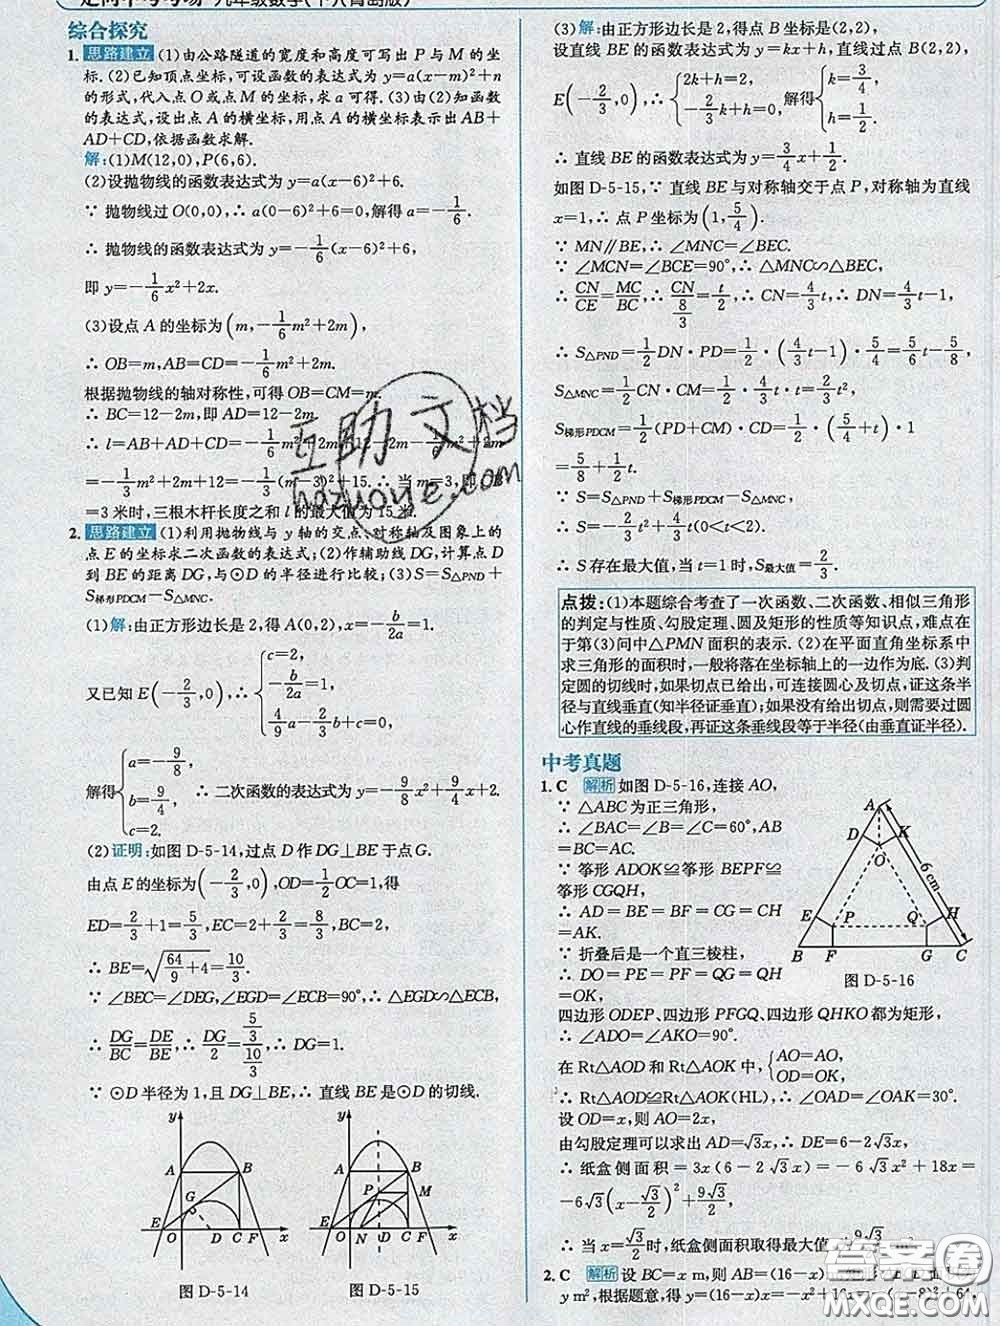 综合探究
1. 思路建立 (1)由公路隧道的宽度和高度可写出 P 与 M 的坐
标.(2)已知顶点坐标,可设函数的表达式为 y=a(x−m)²+n
的形式,代入点 O或点 M 的坐标,求 a 可得.(3)由(2)知函数
的表达式,设出点 A 的横坐标,用点 A 的横坐标表示出 AB+
AD+CD,依据函数求解.
解:(1)M(12,0),P(6,6).
(2)设抛物线的函数表达式为 y=a(x−6)²+6.
∵ 抛物线过 O(0,0),∴ a(0−6)²+6=0,解得 a=−1/6.
∴ 抛物线的函数表达式为 y=−1/6(x−6)²+6,
即 y=−1/6x²+2x.
(3)设点 A 的坐标为(m,−1/6m²+2m),
∴ OB=m,AB=CD=−1/6m²+2m.
根据抛物线的轴对称性,可得 OB=CM=m.
∴ BC=12−2m,即 AD=12−2m.
∴ l=AB+AD+CD=−1/6m²+2m+12−2m−1/6m²+2m
=−1/3m²+2m+12=−1/3(m−3)²+15.∴ 当 m=3,即 OB
=3 米时,三根木杆长度之和 l 的最大值为 15 米.
2. 思路建立 (1)利用抛物线与 y 轴的交点、对称轴及图象上的
点 E 的坐标求二次函数的表达式;(2)作辅助线 DG,计算点 D
到 BE 的距离 DG,与⊙D 的半径进行比较;(3)S=S△PND+
S梯形PDCM−S△MNC.
(1)解:由正方形边长是 2,得 A(0,2),x=−b/2a=1.
又已知 E(−2/3,0),∴ {c=2, −b/2a=1, 4/9a−2/3b+c=0.
解得{a=−9/8, b=9/4, c=2. ∴ 二次函数的表达式为 y=−9/8x²+9/4x+2.
(2)证明:如图 D-5-14,过点 D 作DG⊥BE 于点G.
由点 E 的坐标为(−2/3,0),OD=1/2OC=1,得
ED=2/3+1=5/3,EC=2+2/3=8/3,BC=2,
∴ BE=√(64/9+4)=10/3.
∵ ∠BEC=∠DEG,∠EGD=∠ECB=90°,∴ △EGD∽△ECB,
∴ DG/BC=DE/BE,∴ DG/2=(5/3)/(10/3),∴ DG=1.
∵ ⊙D 半径为 1,且 DG⊥BE,∴ 直线 BE 是⊙D 的切线.
y A B G E O D C F x
图 D-5-14
y A B P M E O N D C F x
图 D-5-15
(3)解:由正方形边长是 2,得点 B(2,2),
设直线 BE 的函数表达式为 y=kx+h,直线过点 B(2,2),
E(−2/3,0),∴ {2k+h=2, −2/3k+h=0, 解得{k=3/4, h=1/2.
∴ 直线 BE 的函数表达式为 y=3/4x+1/2.
如图 D-5-15,∵ 直线 BE 与对称轴交于点 P,对称轴为直线
x=1,∴ 点 P 坐标为(1,5/4).
∵ MN∥BE,∴ ∠MNC=∠BEC.
∵ ∠MCN=∠BCE=90°,∴ △MNC∽△BEC,
∴ CN/CE=MC/BC,∴ CN/(8/3)=t/2,∴ CN=4/3t,∴ DN=4/3t−1,
∴ S△PND=1/2DN·PD=1/2·(4/3t−1)·5/4=5/6t−5/8,
S△MNC=1/2CN·CM=1/2·4/3t·t=2/3t²,
S梯形PDCM=1/2(PD+CM)·CD=1/2·(5/4+t)·1
=5/8+1/2t.
∵ S=S△PND+S梯形PDCM−S△MNC,
∴ S=−2/3t²+4/3t(0<t<2).
∴ S 存在最大值,当 t=1 时,S最大值=2/3.
点拨:(1)本题综合考查了一次函数、二次函数、相似三角形
的判定与性质、勾股定理、圆及矩形的性质等知识点,难点在
于第(3)问中△PMN 面积的表示.(2)在平面直角坐标系中
求三角形的面积时,一般将落在坐标轴上的一边作为底.(3)判
定圆的切线时,如果切点已给出,可连接圆心及切点,证这条半
径与直线垂直(知半径证垂直);如果没有给出切点,则需要过圆
心作直线的垂线段,再证这条垂线段等于半径(由垂直证半径).
中考真题
1. C 解析 如图 D-5-16,连接 AO,
∵ △ABC 为正三角形,
∴ ∠BAC=∠B=∠C=60°,AB
=BC=AC.
∵ 筝形 ADOK≌筝形 BEPF≌
筝形 CGQH,
∴ AD=BE=BF=CG=CH
=AK.
∵ 折叠后是一个直三棱柱,
∴ DO=PE=PF=QG=QH
=OK,
四边形 ODEP、四边形 PFGQ、四边形 QHKO 都为矩形,
∴ ∠ADO=∠AKO=90°.
在 Rt△AOD 和 Rt△AOK 中,{AO=AO, OD=OK,
∴ Rt△AOD≌Rt△AOK(HL),∴ ∠OAD=∠OAK=30°.
设 OD=x,则 AO=2x,
由勾股定理可以求出 AD=√3x,∴ DE=6−2√3x,
∴ 纸盒侧面积=3x(6−2√3x)=−6√3x²+18x=
−6√3(x−√3/2)²+9√3/2,
∴ 当 x=√3/2时,纸盒侧面积取得最大值为9√3/2
A D K O 6 cm E P Q H B F G C
图 D-5-16
2. C 解析 设 BC=x m,则 AB=(16−x)
y m²,根据题意,得 y=(16−x)x=−x²+16x=−(x−8)²+64,
互助文档
hazuoye.com
答案圈
MXQE.COM